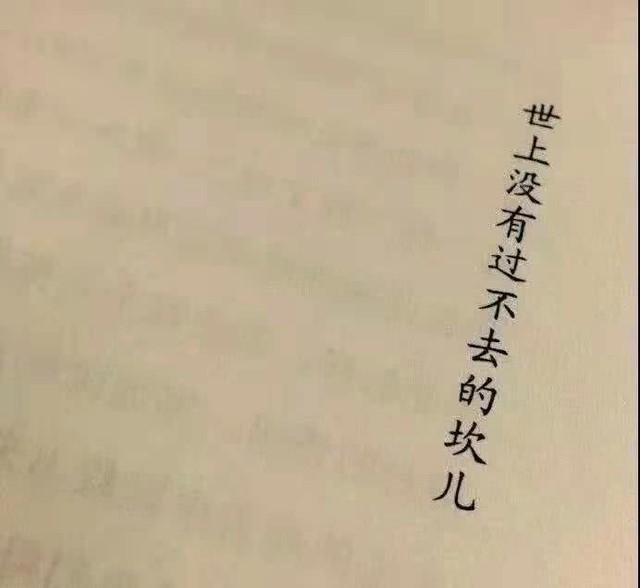 世上没有过不去的坎儿